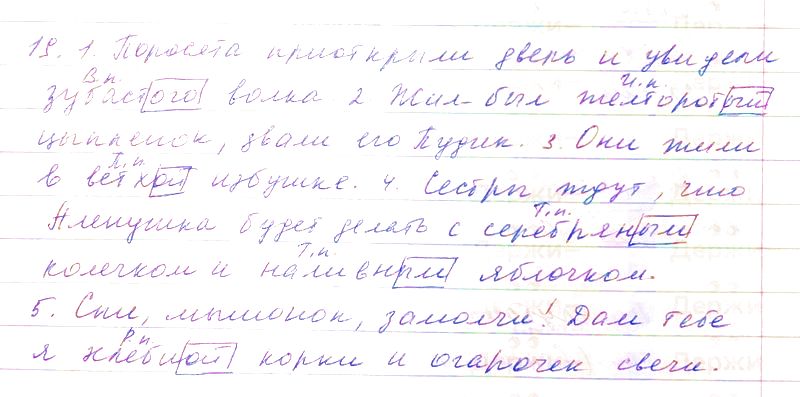 19. 1. Поросята приоткрыли дверь и увидели
В.п. И.п.
зубастого волка 2 Жил-был желторотый
цыпленок, звали его Пудик. 3. Они жили
П.п.
в ветхой избушке. 4. Сестры ждут, что
Т.п.
Аленушка будет делать с серебряным
Т.п.
колечком и наливным яблочком.
5. Спи, мышонок, замолчи! Дам тебе
Р.п.
я хлебной корки и огарочек свечи.